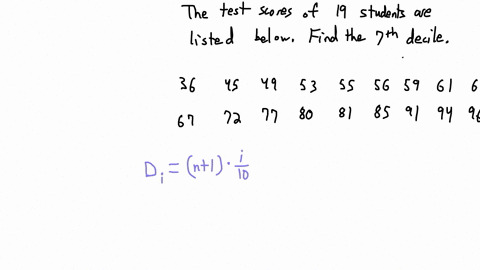 The test scores of 19 students are
listed below. Find the 7th decile.
36 45 49 53 55 56 59 61
67 72 77 80 81 85 91 94 96
D_i = (n+1) · i/10